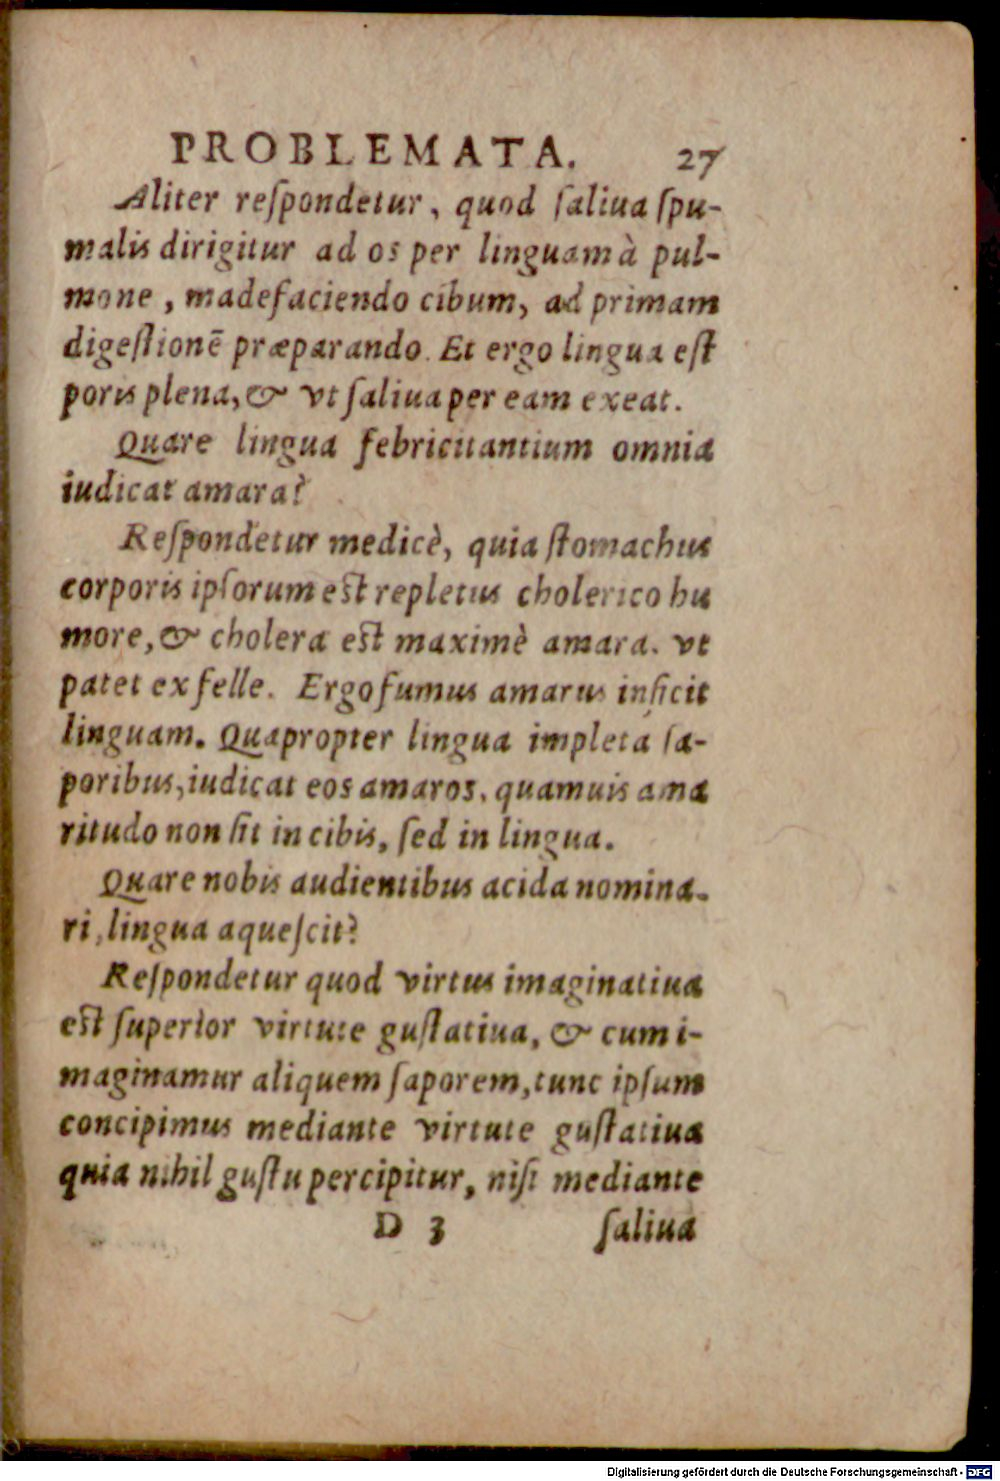 PROBLEMATA. 27
Aliter reſpondetur, quod ſaliua ſpu-
malis dirigitur ad os per linguam à pul-
mone, madefaciendo cibum, ad primam
digeſtionē præparando. Et ergo lingua eſt
poris plena, & vt ſaliua per eam exeat.
Quare lingua febricitantium omnia
iudicat amara?
Reſpondetur medicè, quia ſtomachus
corporis ipſorum eſt repletus cholerico hu
more, & cholera eſt maximè amara. vt
patet ex felle. Ergo fumus amarus inficit
linguam. Quapropter lingua impleta ſa-
poribus, iudicat eos amaros, quamuis ama
ritudo non ſit in cibis, ſed in lingua.
Quare nobis audientibus acida nomina-
ri, lingua aqueſcit?
Reſpondetur quod virtus imaginatiua
eſt ſuperior virtute guſtatiua, & cum i-
maginamur aliquem ſaporem, tunc ipſum
concipimus mediante virtute guſtatiua
quia nihil guſtu percipitur, niſi mediante
D 3 ſaliua
Digitalisierung gefördert durch die Deutsche Forschungsgemeinschaft - DFG